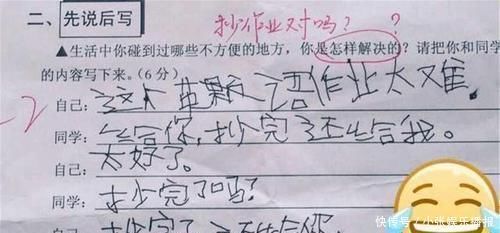 抄作业对吗？ ？
二、先说后写
▲生活中你碰到过哪些不方便的地方，你是怎样解决的？请把你和同学
的内容写下来。（6分）
-2
自己：这个英颗之语作业太难
同学：给你，抄完还给我。
自己：太好了。
同学：抄完了吗？
抄完了 还给你
快传号/小张娱乐播报